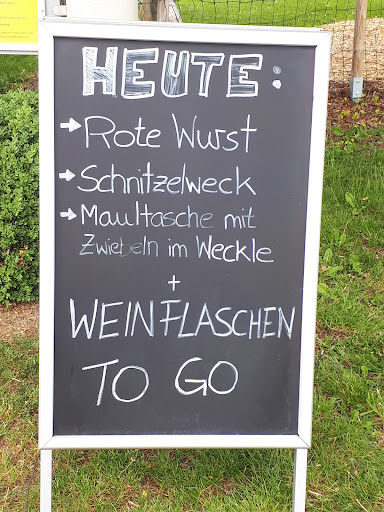 HEUTE:
→ Rote Wurst
→ Schnitzelweck
→ Maultasche mit
Zwiebeln im Weckle
+
WEINFLASCHEN
TO GO